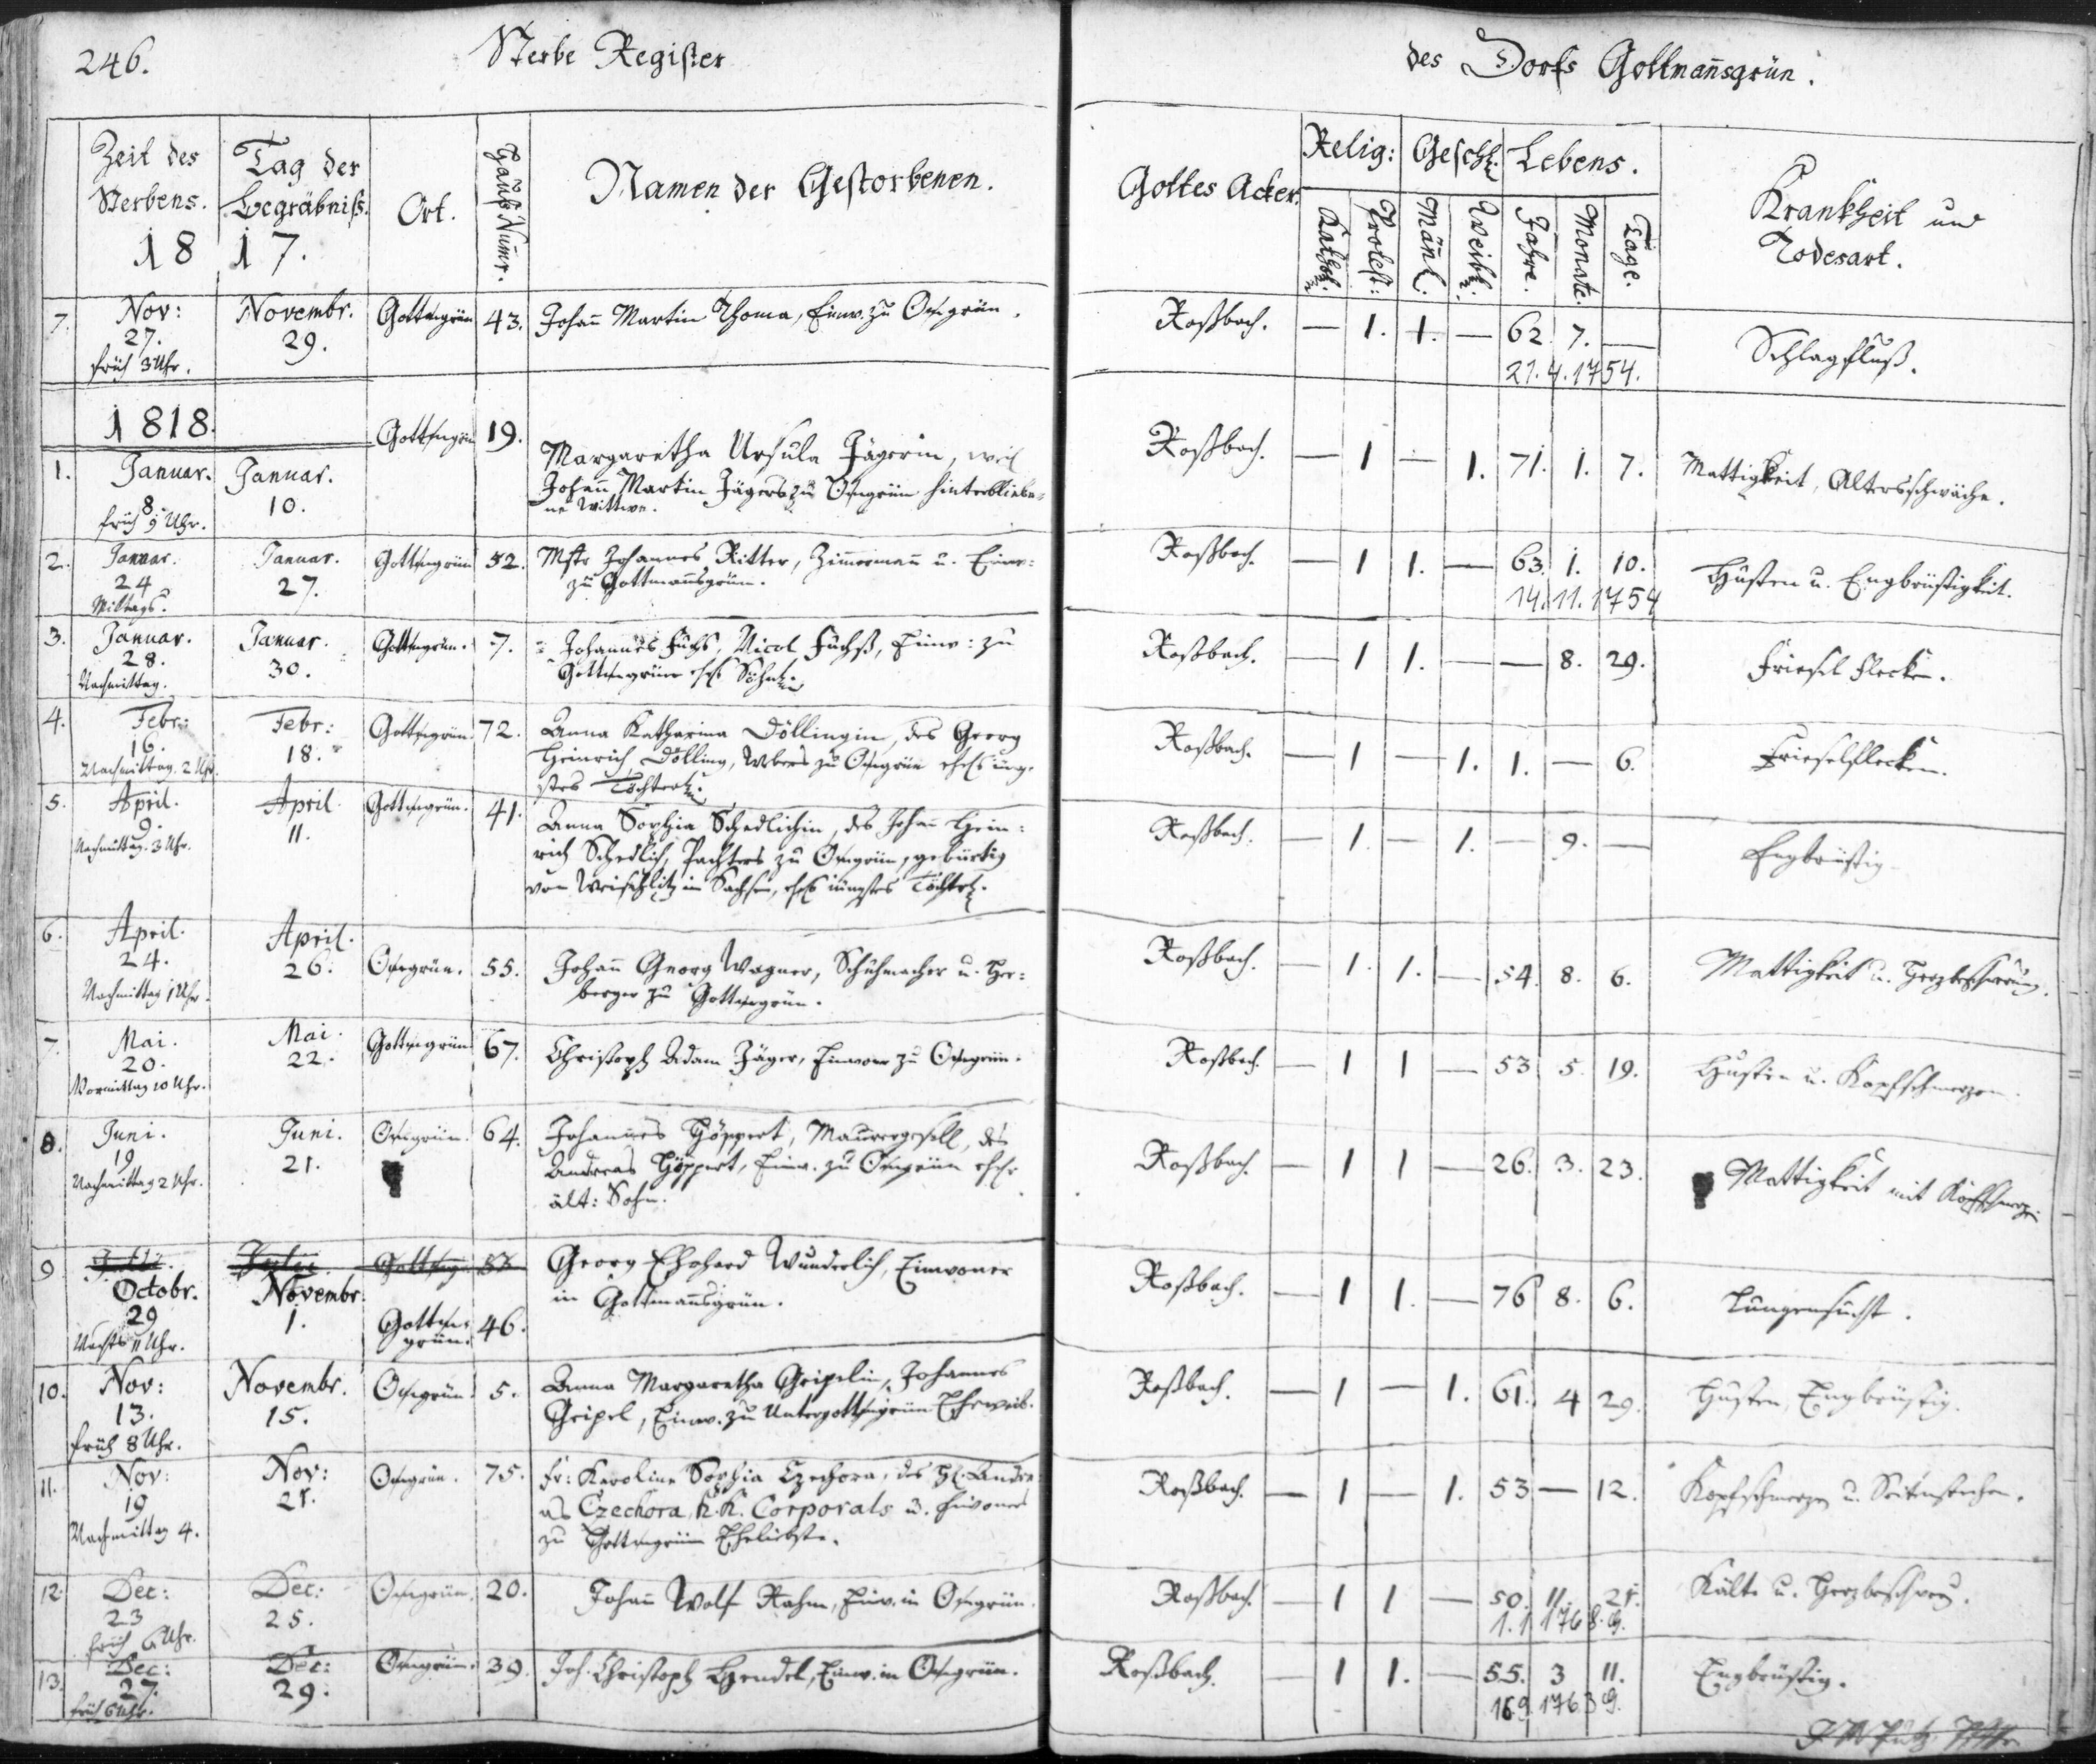 246.
Sterbe Register
des Dorfs Gottman̄sgrün.
Zeit des Sterbens.
Tag der Begräbniß.
18 17.
Ort.
Hauß Num̄r.
Namen der Gestorbenen.
Gottes Acker.
Relig:
Kathol:
Protest:
Geschl:
Män̄l:
Weibl:
Lebens.
Jahre.
Monate.
Tage.
Krankheit und
Todesart.
7. Nov: Novembr. Gottmgrün 43. Johan̄ Martin Thoma, Einw. zu Gfmgrün. Roßbach. — 1. 1. — 62 7. — Schlagfluß.
27. 29.
früh 3 Uhr.
21.4.1754.
1818.
1. Januar. Januar. Gottmgrün 19. Margaretha Ursula Jägerin, weil Roßbach. — 1 — 1. 71. 1. 7. Mattigkeit, Altersschwäche.
8. 10. Johan̄ Martin Jägers zu Gfmgrün hinterblieb-
früh 9 Uhr. ne Wittwe.
2. Januar. Januar. Gottmgrün 52. Mstr Johannes Ritter, Zim̄erman̄ u. Einw: Roßbach. — 1 1. — 63. 1. 10. Husten u. Engbrüstigkeit.
24 27. zu Gottman̄sgrün.
Mittags.
14.11.1754
3. Januar. Januar. Gottmgrün. 7. Johannes Fuchs, Nicol Fuchß, Einw: zu Roßbach. — 1 1. — — 8. 29. Friesel Flecken.
28. 30. Gottmgrün ehel. Söhnl:
Nachmittag.
4. Febr: Febr: Gottmgrün 72. Anna Katharina Döllingin, des Georg Roßbach. — 1 — 1. 1. — 6. Frieselflecken.
16. 18. Heinrich Dölling, Webers zu Gfmgrün ehel. jüng-
Nachmittag. 2 Uhr. stes Töchterl:
5. April. April Gottmgrün. 41. Anna Sophia Schedlichin, des Johan̄ Hein- Roßbach. — 1. — 1. — 9. — Engbrüstig
9. 11. rich Schedlich, Pachters zu Gfmgrün, gebürtig
Nachmittag. 3 Uhr. von Weischlitz in Sachsen, ehel. jüngstes Töchterl.
6. April. April. Gfmgrün. 55. Johan̄ Georg Wagner, Schuhmacher u. Her- Roßbach. — 1. 1. — 54. 8. 6. Mattigkeit u. Herzbeschwerung.
24. 26. berger zu Gottmgrün.
Nachmittag 1 Uhr.
7. Mai. Mai. Gottmgrün 67. Christoph Adam Jäger, Einwoner zu Gfmgrün. Roßbach. — 1 1 — 53 5. 19. Husten u. Kopfschmerzen.
20. 22.
Vormittag 10 Uhr.
8. Juni. Juni. Gfmgrün. 64. Johannes Höppert, Maurergesell, des Roßbach. — 1 1 — 26. 3. 23. Mattigkeit mit Kopfschmerzen
19 21. Andreas Höppert, Einw. zu Gfmgrün ehel.
Nachmittag 2 Uhr. ält: Sohn.
9 Octobr. Novembr. Gottm- 46. Georg Ehrhard Wunderlich, Einwoner Roßbach. — 1 1. — 76 8. 6. Lungensucht.
29 1. grün. in Gottman̄sgrün.
Nachts 11 Uhr.
10. Nov: Novembr. Gfmgrün 5. Anna Margaretha Geipelin, Johannes Roßbach. — 1 — 1. 61. 4 29. Husten, Engbrüstig.
13. 15. Geipel, Einw. zu Untergottmgrün Eheweib.
früh 8 Uhr.
11. Nov: Nov: Gfmgrün. 75. Fr: Karoline Sophia Czechora, des H. Andre- Roßbach. — 1 — 1. 53 — 12. Kopfschmerzen u. Seitenstechen.
19 21. as Czechora, K. K. Corporals u. Einwoners
Nachmittag 4. zu Gottmgrün Eheliebste.
12. Dec: Dec: Gfmgrün. 20. Johan̄ Wolf Rahm, Einw. in Gfmgrün. Roßbach. — 1 1 — 50. 11. 21. Kälte u. Herzbeschwer.
23 25.
früh 6 Uhr.
1.1.1768.
13. Dec: Dec: Gfmgrün. 39. Joh. Christoph Hendel, Einw. in Gfmgrün. Roßbach. — 1 1. — 55. 3 11. Engbrüstig.
27. 29.
früh 6 Uhr.
16.9.1763